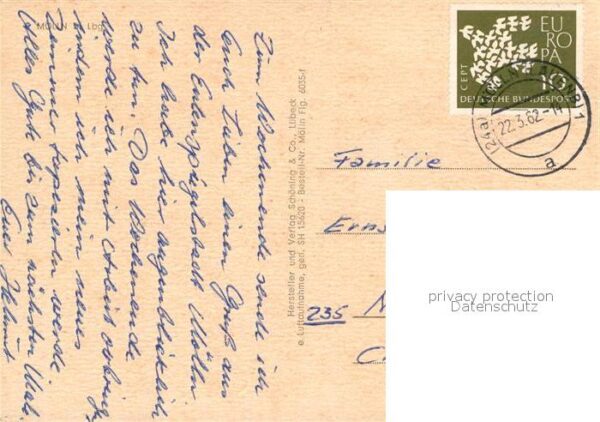 MÖLLN i. Lbg.
Zum Wochenende sende ich
Euch Lieben einen Gruß aus
der Eulenspiegelstadt Mölln
Ich habe hier augenblicklich
zu tun. Das Wochenende
werde ich mit Arbeit verbringen
indem ich mein neues
Zimmer tapezieren werde
Alles Gute bis zum nächsten Mal.
Euer Helmut
Hersteller und Verlag Schöning & Co., Lübeck
e Luftaufnahme, gen. SH 15620 - Bestell-Nr. Mölln Flg. 6035-f
EU
RO
PA
CEPT
10
DEUTSCHE BUNDESPOST
(24a) MÖLLN 1
22.3.62
a
Familie
Erns
235 N
privacy protection
Datenschutz